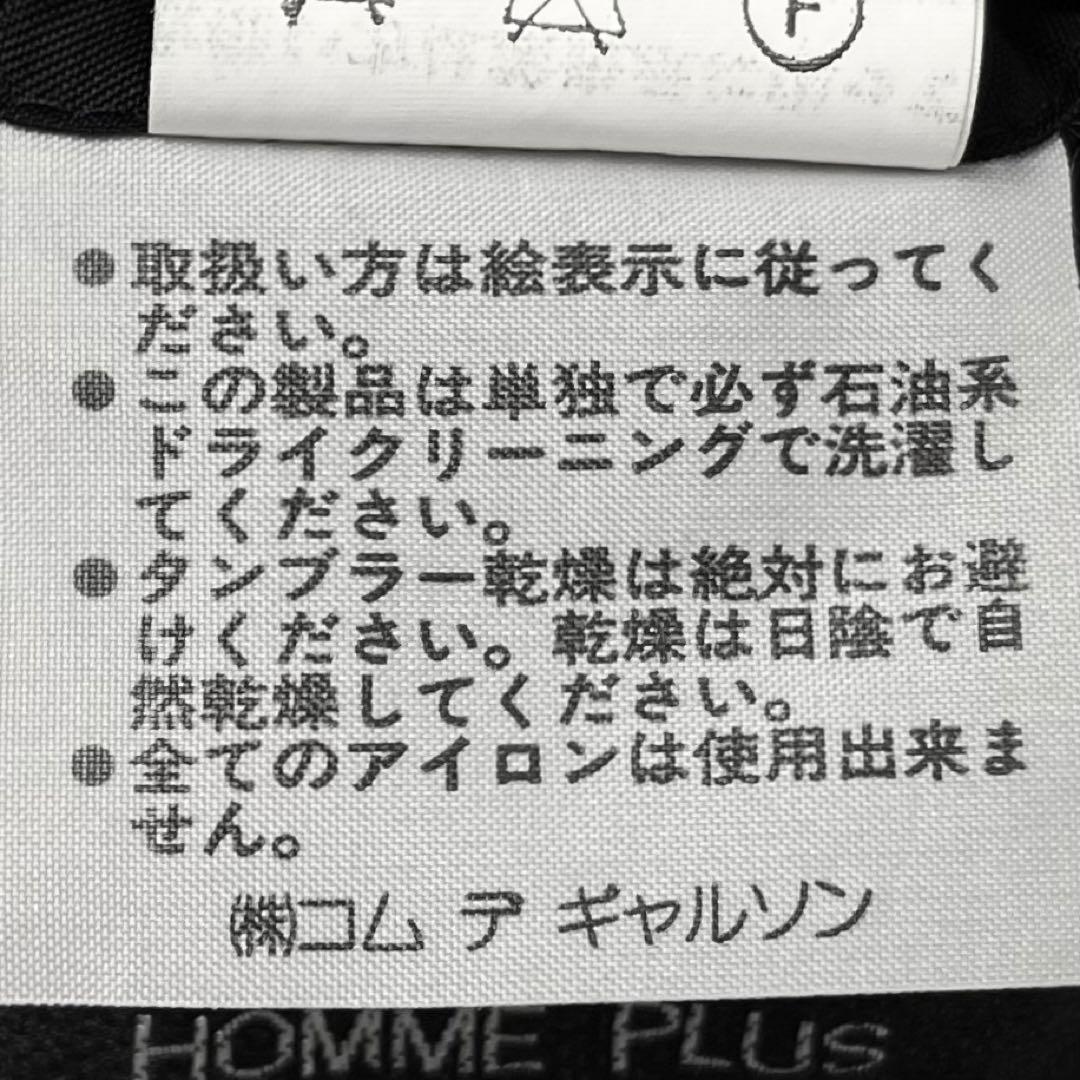 F
●取扱い方は絵表示に従ってく
ださい。
●この製品は単独で必ず石油系
ドライクリーニングで洗濯し
てください。
●タンブラー乾燥は絶対にお避
けください。乾燥は日陰で自
然乾燥してください。
●全てのアイロンは使用出来ま
せん。
㈱コム デ ギャルソン
HOMME PLUS